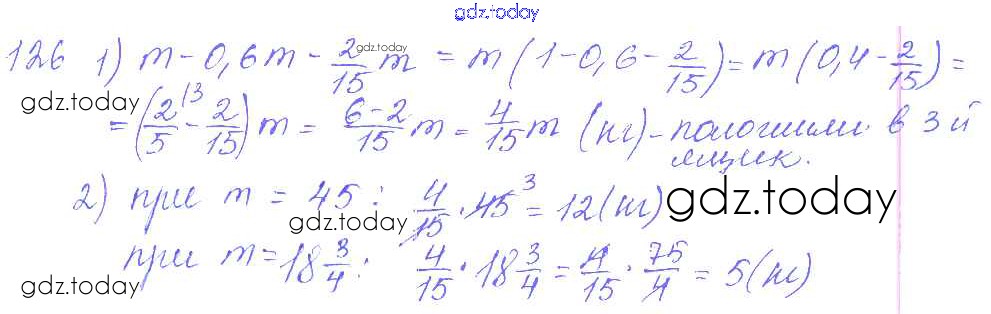 gdz.today
126 1) m - 0,6m - 2/15 m = m (1 - 0,6 - 2/15) = m (0,4 - 2/15) =
gdz.today
= (2/5 ^{\3} - 2/15) m = 6-2/15 m = 4/15 m (кг) - положили в 3й
gdz.today
ящик.
2) при m = 45: 4/15 · 45 ³ = 12 (кг)
gdz.today
gdz.today
при m = 18 3/4: 4/15 · 18 3/4 = 4/15 · 75/4 = 5 (кг)
gdz.today